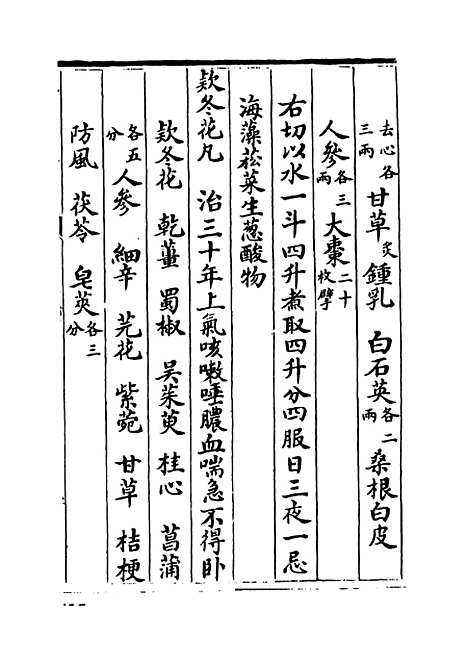 去心各三兩甘草炙鍾乳　白石英各二兩桑根白皮
人參各三兩大棗二十枚擘
右切以水一斗四升煮取四升分四服日三夜一忌
海藻菘菜生蔥酸物
欵冬花凡　治三十年上氣咳嗽唾膿血喘急不得卧
欵冬花　乾薑　蜀椒　吴茱萸　桂心　菖蒲
各五分人參　細辛　芫花　紫菀　甘草　桔梗
防風　茯苓　皂莢各三分